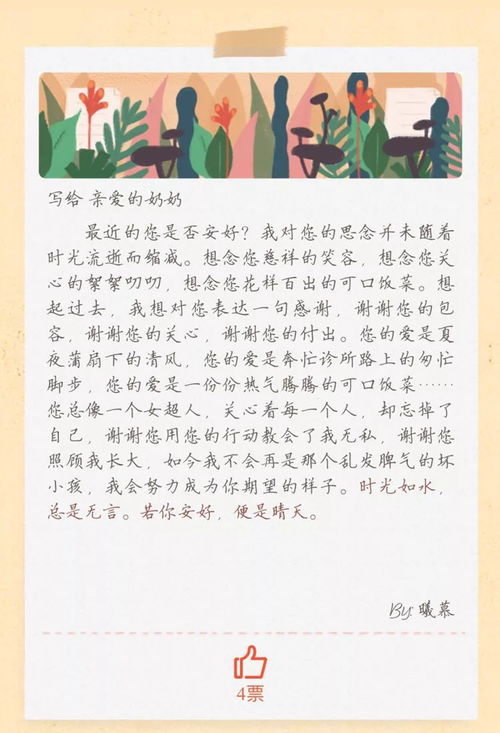 写给 亲爱的奶奶
最近的您是否安好？我对您的思念并未随着
时光流逝而缩减。想念您慈祥的笑容，想念您关
心的絮絮叨叨，想念您花样百出的可口饭菜。想
起过去，我想对您表达一句感谢，谢谢您的包
容，谢谢您的关心，谢谢您的付出。您的爱是夏
夜蒲扇下的清风，您的爱是奔忙诊所路上的匆忙
脚步，您的爱是一份份热气腾腾的可口饭菜……
您总像一个女超人，关心着每一个人，却忘掉了
自己，谢谢您用您的行动教会了我无私，谢谢您
照顾我长大，如今我不会再是那个乱发脾气的坏
小孩，我会努力成为你期望的样子。时光如水，
总是无言。若你安好，便是晴天。
By: 曦慕
4票